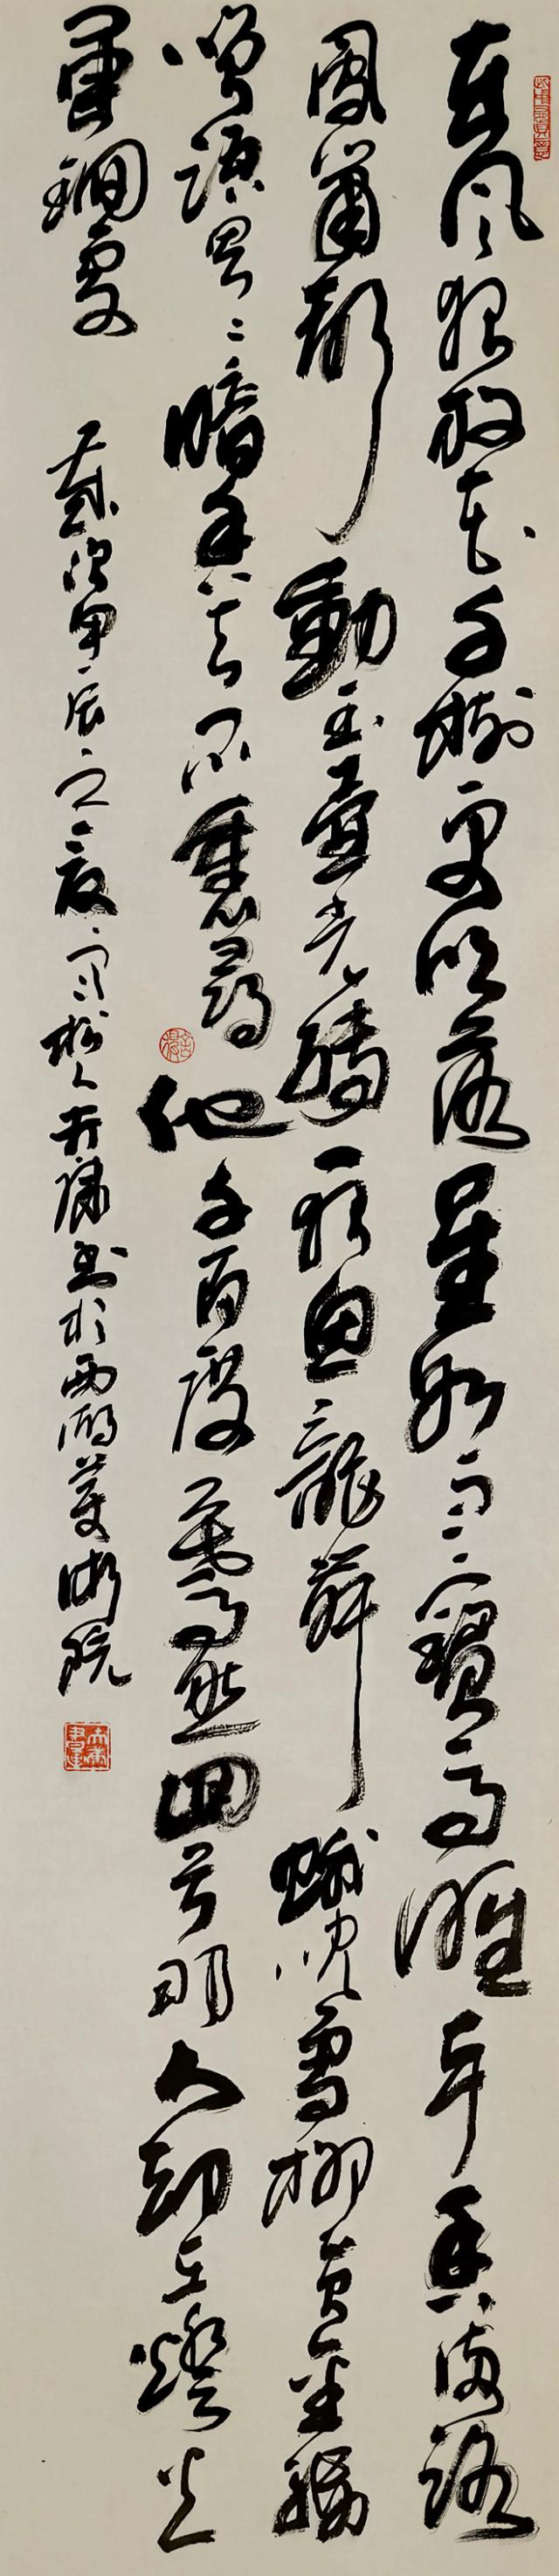 東風夜放花千樹更吹落星如雨寶馬雕車香滿路
鳳簫聲動玉壺光轉一夜魚龍舞蛾兒雪柳黃金縷
笑語盈盈暗香去衆裏尋他千百度驀然回首那人卻在燈火
闌珊處
歲次甲辰之夏 松人 書於西湖美術院